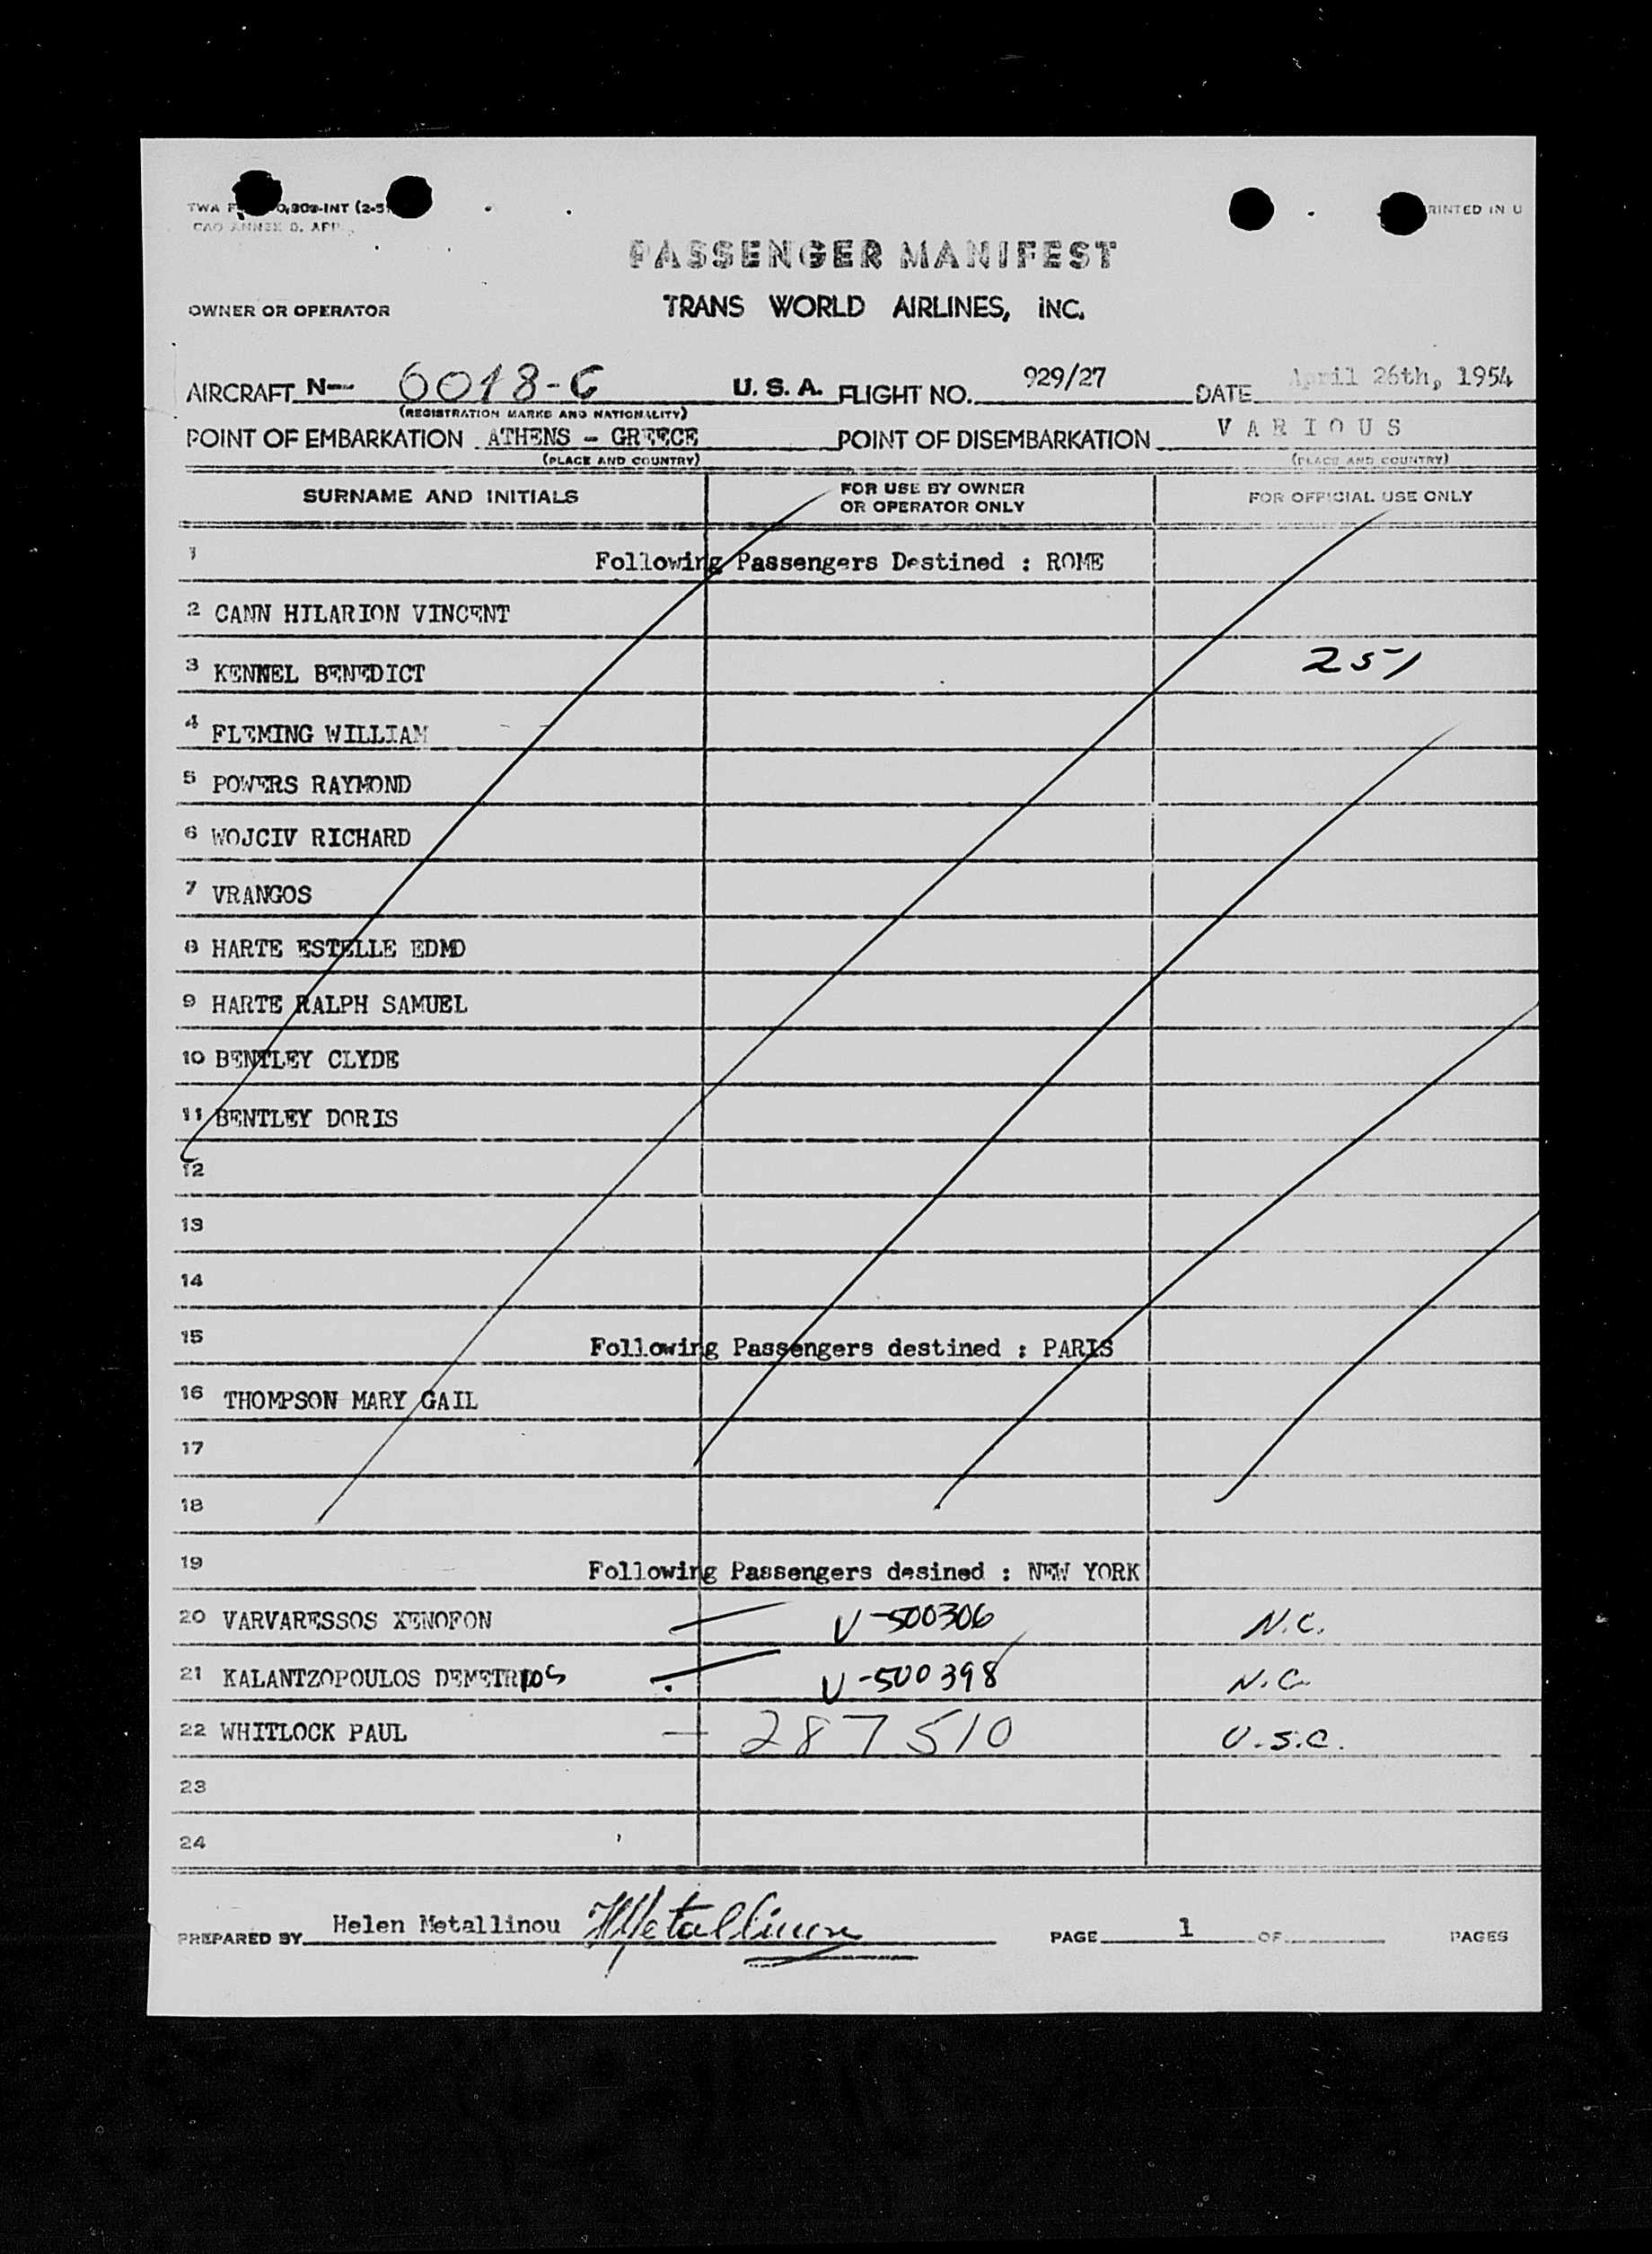 PASSENGER MANIFEST
OWNER OR OPERATOR TRANS WORLD AIRLINES, INC.
AIRCRAFT N— 6018-C U. S. A. FLIGHT NO. 929/27 DATE April 26th, 1954
(REGISTRATION MARKS AND NATIONALITY)
POINT OF EMBARKATION ATHENS - GREECE POINT OF DISEMBARKATION V A R I O U S
(PLACE AND COUNTRY) (PLACE AND COUNTRY)
SURNAME AND INITIALS FOR USE BY OWNER OR OPERATOR ONLY FOR OFFICIAL USE ONLY
1 Following Passengers Destined : ROME
2 CANN HILARION VINCENT
3 KENNEL BENEDICT 251
4 FLEMING WILLIAM
5 POWERS RAYMOND
6 WOJCIV RICHARD
7 VRANGOS
8 HARTE ESTELLE EDMD
9 HARTE RALPH SAMUEL
10 BENTLEY CLYDE
11 BENTLEY DORIS
12
13
14
15 Following Passengers destined : PARIS
16 THOMPSON MARY GAIL
17
18
19 Following Passengers desined : NEW YORK
20 VARVARESSOS XENOFON V-500306 N.C.
21 KALANTZOPOULOS DEMETRIOS V-500398 N.C.
22 WHITLOCK PAUL - 287510 U.S.C.
23
24
PREPARED BY Helen Metallinou HMetallinou PAGE 1 OF PAGES